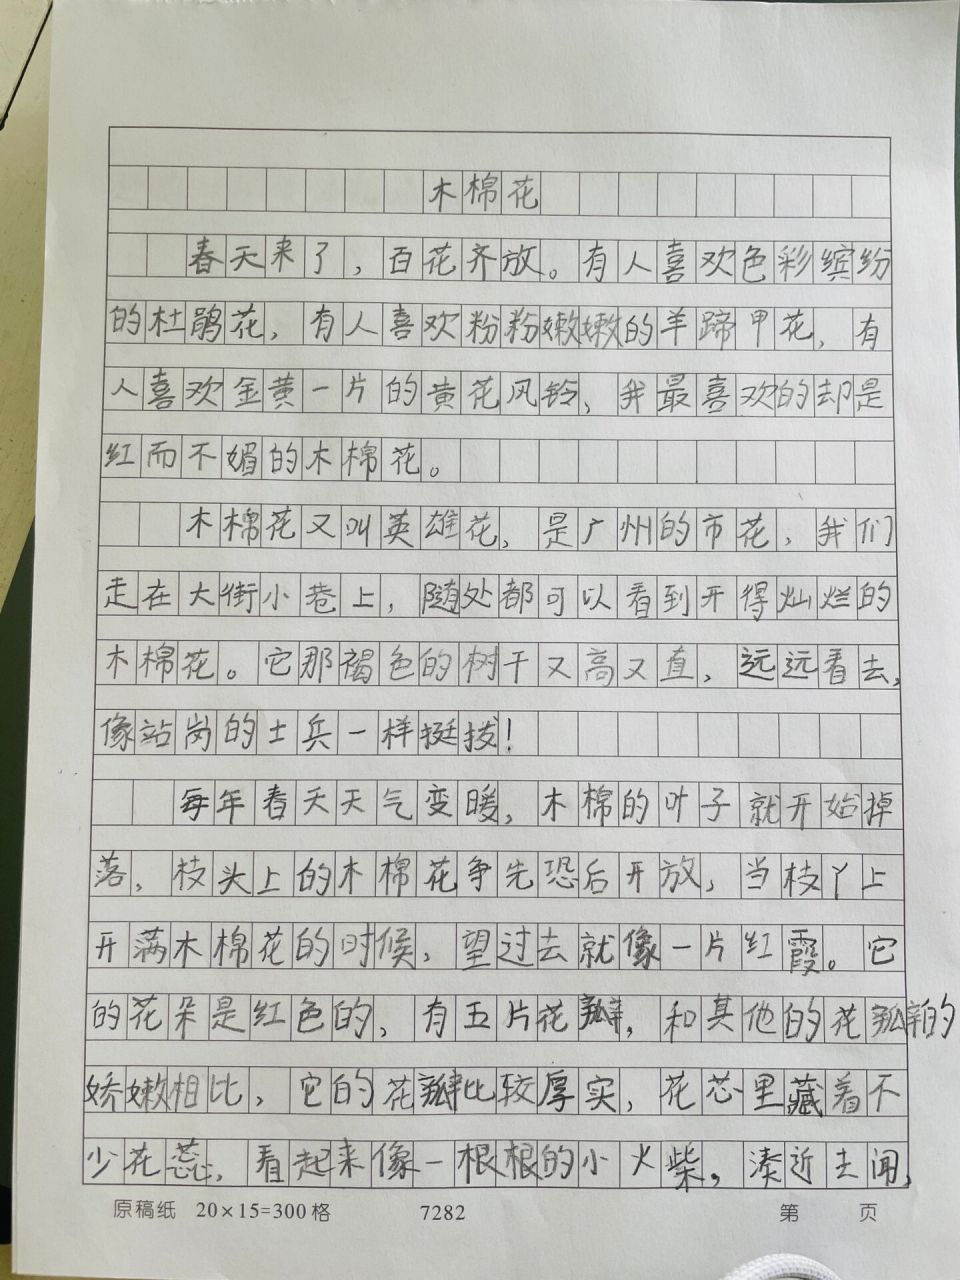 木棉花
春天来了，百花齐放。有人喜欢色彩缤纷
的杜鹃花，有人喜欢粉粉嫩嫩的羊蹄甲花，有
人喜欢金黄一片的黄花风铃、我最喜欢的却是
红而不媚的木棉花。
木棉花又叫英雄花，是广州的市花，我们
走在大街小巷上，随处都可以看到开得灿烂的
木棉花。它那褐色的树干又高又直，远远看去，
像站岗的士兵一样挺拔！
每年春天天气变暖，木棉的叶子就开始掉
落，枝头上的木棉花争先恐后开放，当枝丫上
开满木棉花的时候，望过去就像一片红霞。它
的花朵是红色的，有五片花瓣，和其他的花瓣的
娇嫩相比，它的花瓣比较厚实，花芯里藏着不
少花蕊，看起来像一根根的小火柴，凑近去闻，
原稿纸 20×15=300格 7282 第 页